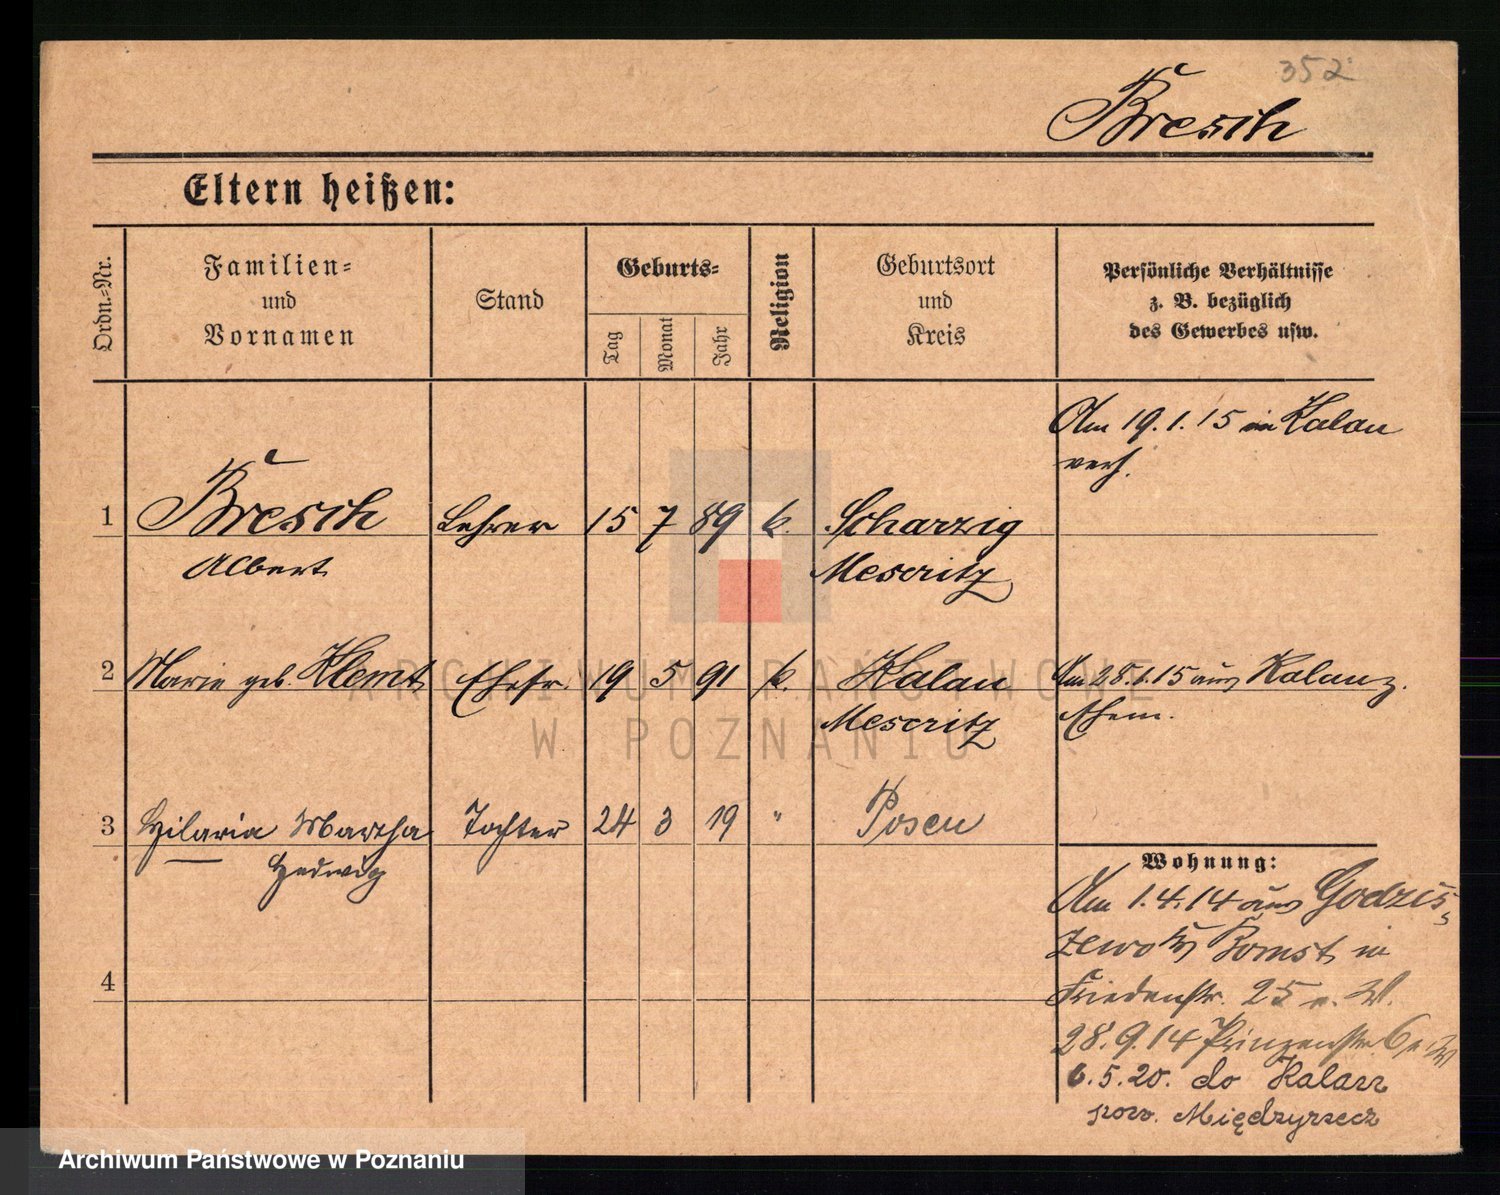 352
Bresch
Eltern heißen:
Ordn.=Nr.
Familien=
und
Vornamen
Stand
Geburts=
Tag
Monat
Jahr
Religion
Geburtsort
und
Kreis
Persönliche Verhältnisse
z. B. bezüglich
des Gewerbes usw.
Am 19.1.15 in Kalau
verh.
1 Bresch Lehrer 15 7 89 k. Scharzig
Albert Meseritz
2 Marie geb. Klemt Ehefr. 19 5 91 k. Kalau Am 28.1.15 aus Kalau z.
Meseritz Ehem.
3 Hilaria Martha Tochter 24 3 19 " Posen
Hedwig
Wohnung:
Am 1.4.14 aus Godzis-
zewo Kr Bomst in
4
Friedenstr. 25 e. W.
28.9.14 Prinzenstr. 6 e. W
6.5.20. do Kalau
pow. Międzyrzecz
ARCHIWUM PAŃSTWOWE
W POZNANIU
Archiwum Państwowe w Poznaniu